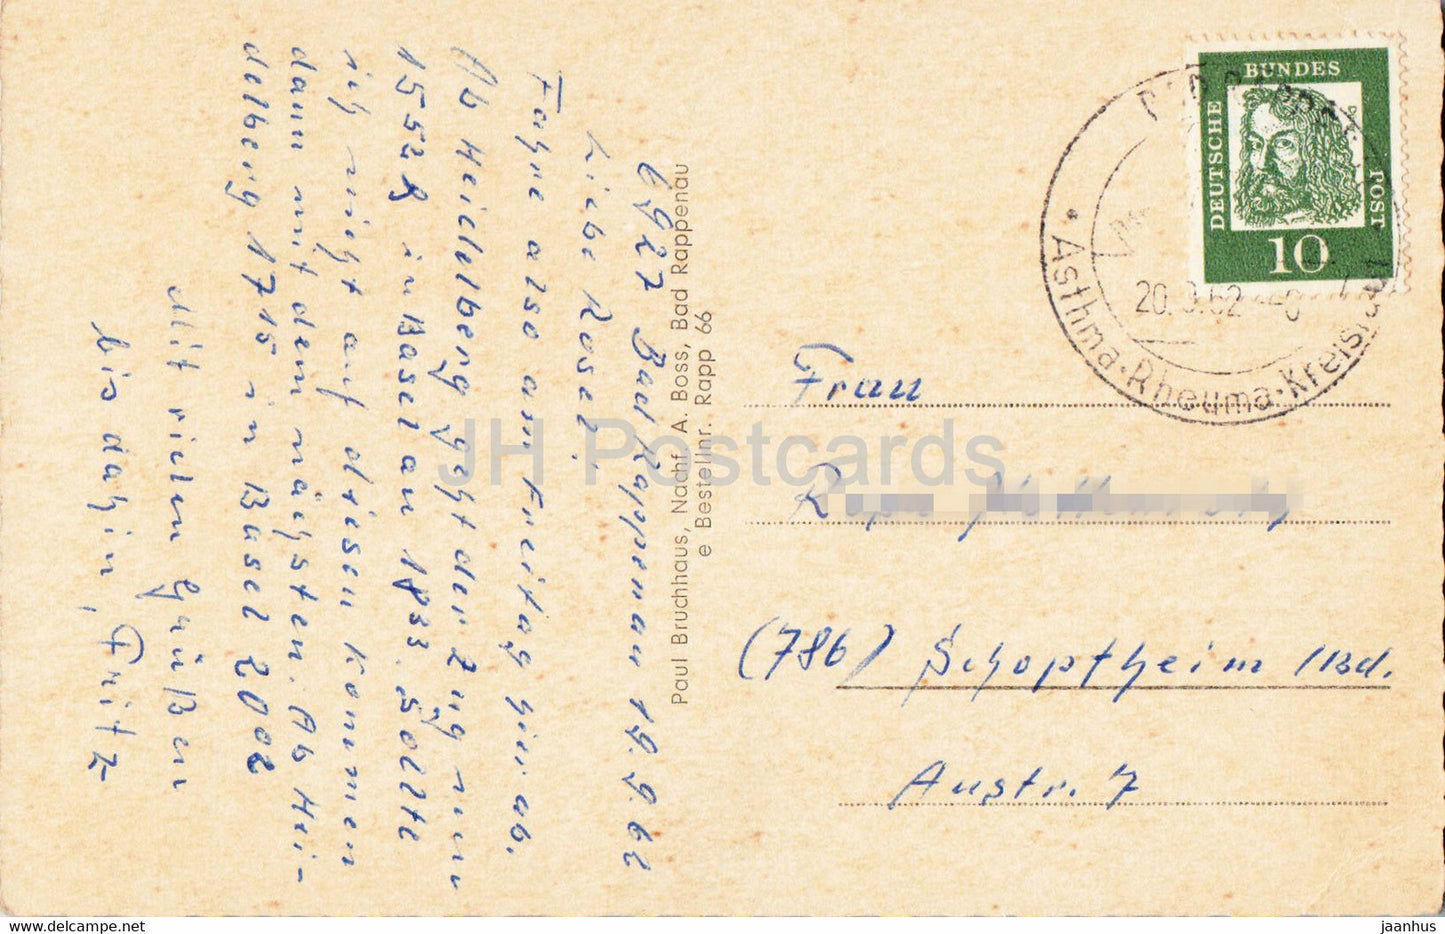 6927 Bad Rappenau 19.9.62
Liebe Rosel,
Fahre also am Freitag hier ab.
Ab Heidelberg geht der Zug um
1552h in Basel an 1833. Sollte
ich nicht auf diesen kommen
dann mit dem nächsten. Ab Hei-
delberg 1715 in Basel 2002
Mit vielen Grüßen
bis dahin, Fritz
Paul Bruchhaus, Nachf. A. Boss, Bad Rappenau
e Bestellnr. Rapp 66
DEUTSCHE
BUNDES
POST
10
20. 9.62
* Asthma·Rheuma·Kreislauf
Frau
(786) Schopfheim /Bd.
Austr. 7
JH Postcards
www.delcampe.net
jaanhus